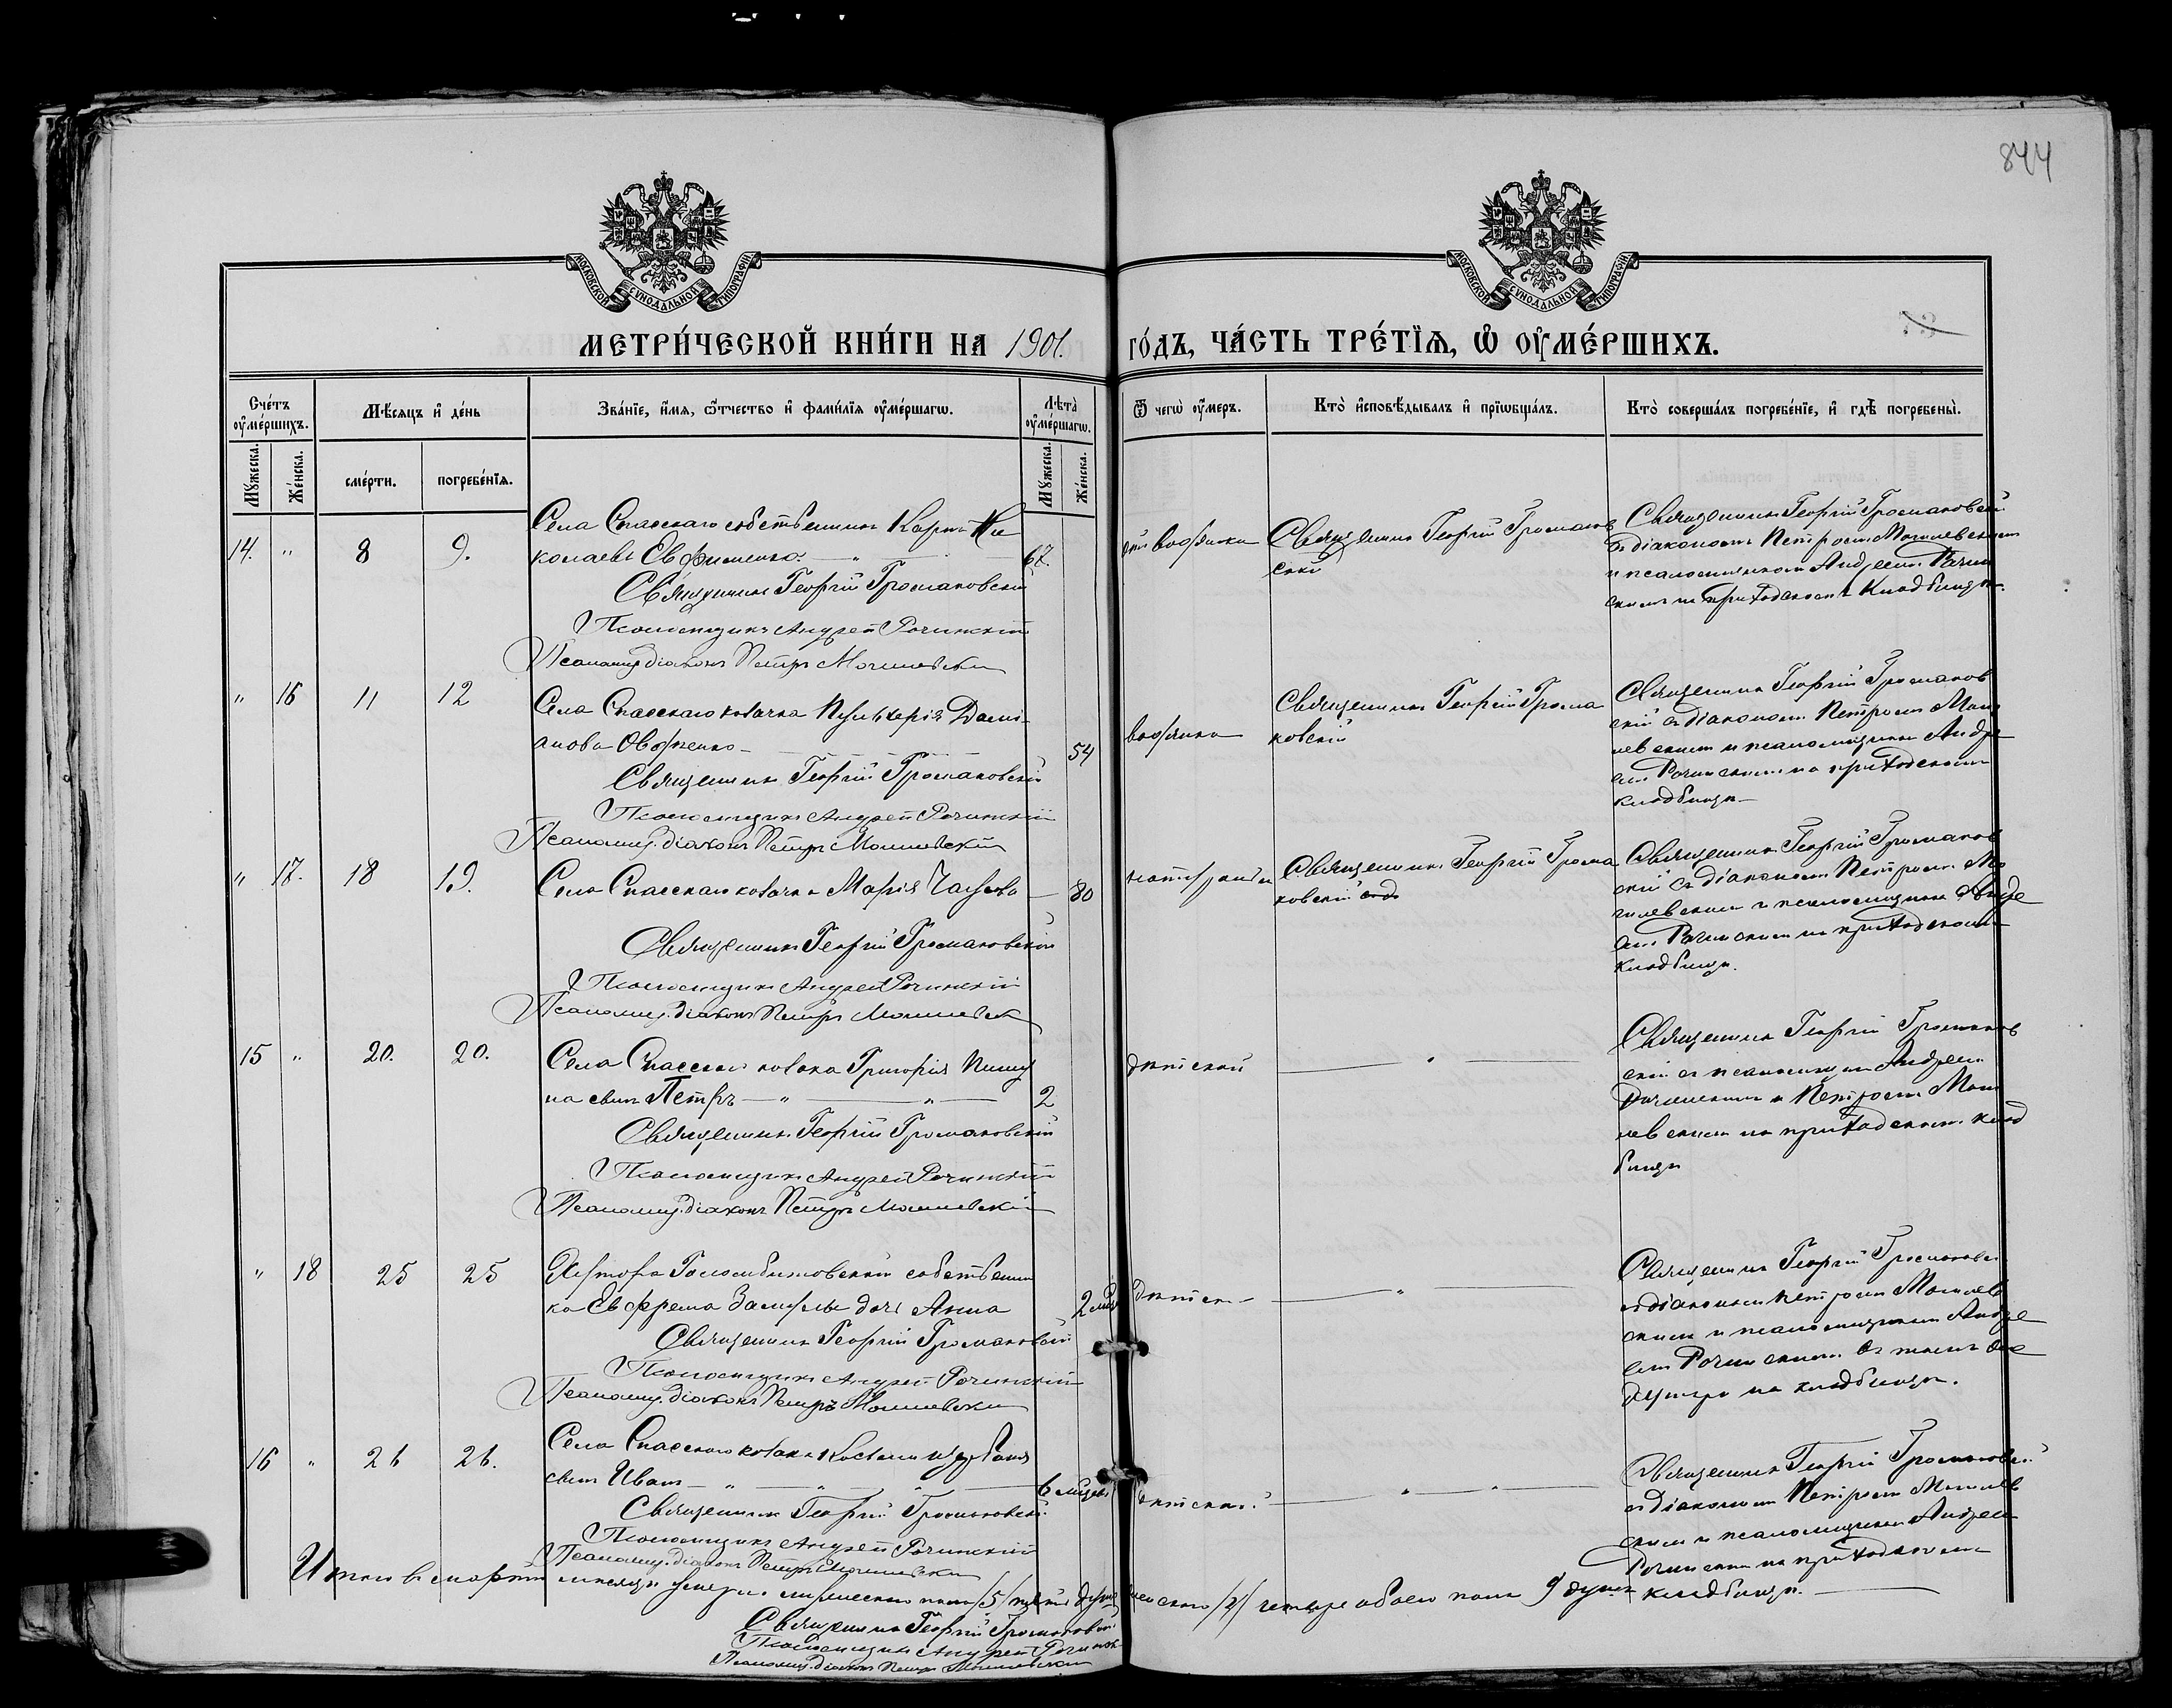 844
МОСКОВСКОЙ СУНОДАЛЬНОЙ ТИПОГРАФІИ
МОСКОВСКОЙ СУНОДАЛЬНОЙ ТИПОГРАФІИ
МЕТРИ́ЧЕСКОЙ КНИ́ГИ НА 1901.
ГО́ДЪ, ЧА́СТЬ ТРЕ́ТЇѦ, Ѡ ОУМЕ́РШИХЪ.
Сче́тъ оуме́ршихъ.
Мѣ́сяцъ и де́нь
Зва́нїе, и́мя, ѻ́тчество и фами́лїя оуме́ршагѡ.
Лѣта̀ оуме́ршагѡ.
Ѿ чегѡ̀ оу́меръ.
Кто̀ исповѣ́дывалъ и прїѡбща́лъ.
Кто̀ соверша́лъ погребе́нїе, и гдѣ̀ погребены̀.
Му́жеска.
Же́нска.
сме́рти.
погребе́нїя.
Му́жеска.
Же́нска.
14. " 8 9.
Села Спасскаго собственникъ Карпъ Ни
колаевъ Евфименко 67.
Священникъ Георгій Громаковскій
Псаломщикъ Андрей Рочинскій
Псаломщ. діаконъ Петръ Могилевскій
Священникъ Георгій Громаков
скій
Священникъ Георгій Громаковскій
съ діакономъ Петромъ Могилевскимъ
и псаломщикомъ Андреемъ Рочин
скимъ на приходскомъ кладбищѣ.
" 16 11 12
Села Спасскаго козачка Пульхерія Дамі-
анова 54
Священникъ Георгій Громаковскій
Псаломщикъ Андрей Рочинскій
Псаломщ. діаконъ Петръ Могилевскій
Священникъ Георгій Грома
ковскій
Священникъ Георгій Громаков
скій съ діакономъ Петромъ Моги
левскимъ и псаломщикомъ Андре
емъ Рочинскимъ на приходскомъ
кладбищѣ
" 17. 18 19.
Села Спасскаго козачка Марія 80
Священникъ Георгій Громаковскій
Псаломщикъ Андрей Рочинскій
Псаломщ. діаконъ Петръ Могилевскій
Священникъ Георгій Грома
ковскій
Священникъ Георгій Громаков
скій съ діакономъ Петромъ Мо
гилевскимъ и псаломщикомъ Андре
емъ Рочинскимъ на приходскомъ
кладбищѣ.
15 " 20. 20.
Села Спасскаго козака Григорія
сынъ Петръ 2
Священникъ Георгій Громаковскій
Псаломщикъ Андрей Рочинскій
Псаломщ. діаконъ Петръ Могилевскій
дѣтской
Священникъ Георгій Громаков
скій съ псаломщикомъ Андреемъ
Рочинскимъ и Петромъ Моги
левскимъ на приходскомъ клад
бищѣ
" 18 25 25
Хутора собственни
ка Ефрема дочь Анна 2
Священникъ Георгій Громаковскій
Псаломщикъ Андрей Рочинскій
Псаломщ. діаконъ Петръ Могилевскій
дѣтск
Священникъ Георгій Громаковск
съ діакономъ Петромъ Могилев
скимъ и псаломщикомъ Андре
емъ Рочинскимъ въ томъ же
хуторѣ на кладбищѣ.
16 " 26 26.
Села Спасскаго козака
сынъ Иванъ 6 мѣсяц.
Священникъ Георгій Громаковскій
Псаломщикъ Андрей Рочинскій
Псаломщ. діаконъ Петръ Могилевскій
дѣтской
Священникъ Георгій Громаковскій
съ діакономъ Петромъ Могилев
скимъ и псаломщикомъ Андреемъ
Рочинскимъ на приходскомъ
кладбищѣ.
Итого въ мартѣ мѣсяцѣ умерло мужескаго пола /5/ пять душъ женскаго /4/ четыре обоего пола 9 душъ
Священникъ Георгій Громаковскій
Псаломщикъ Андрей Рочинск
Псаломщ. діаконъ Петръ Могилевскій